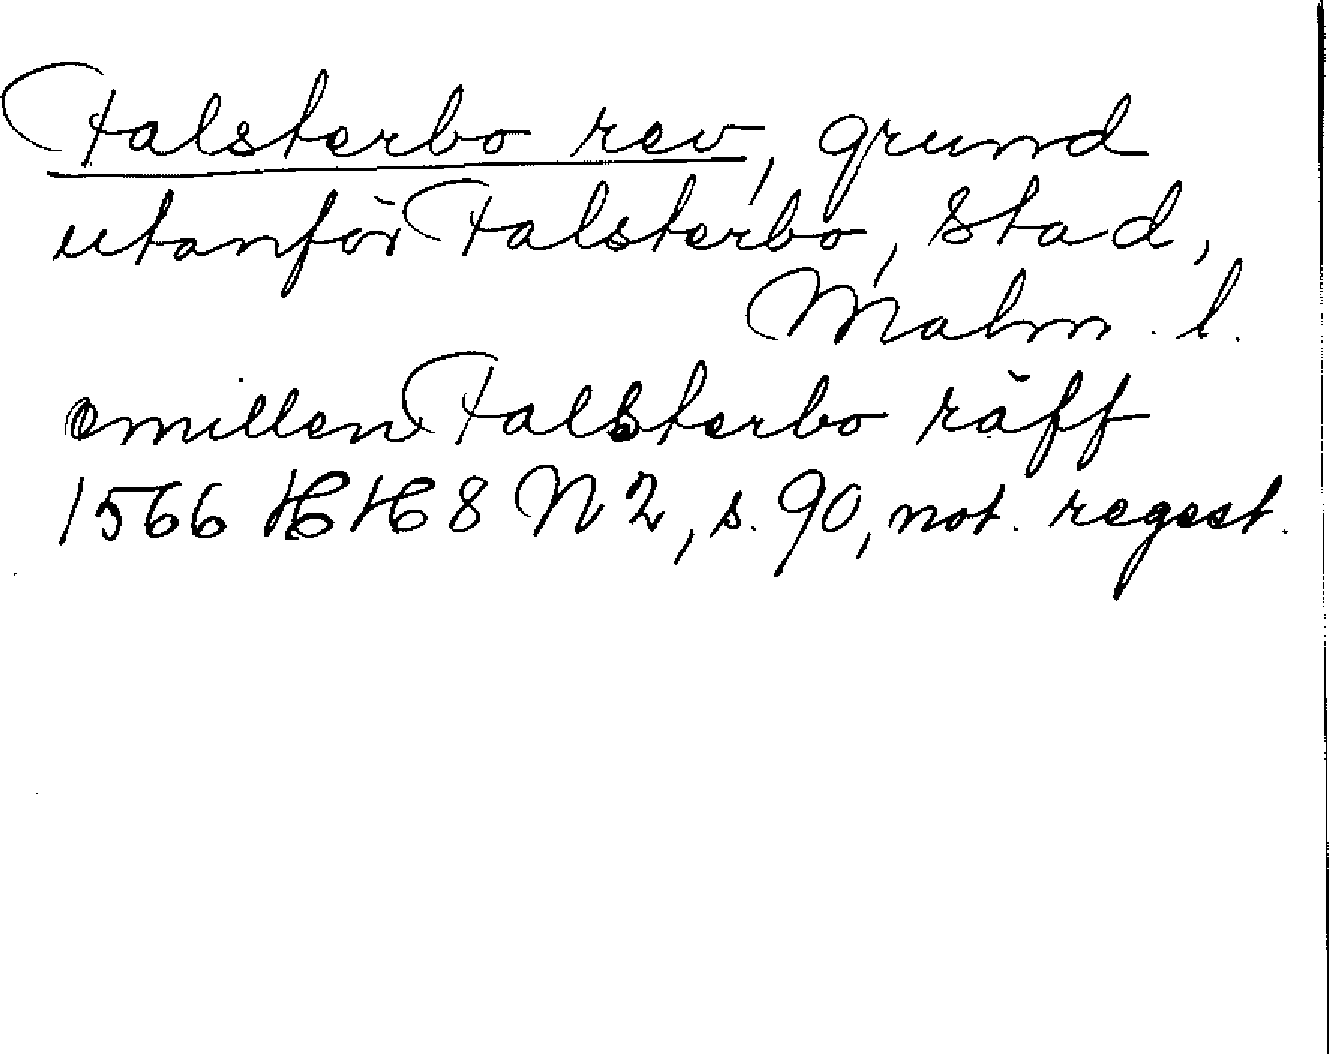 Falsterbo rev, grund
utanför Falsterbo, stad,
Malm. l.
emillen Falsterbo räff
1566 HH 8 N 2, s. 90, not. regest.